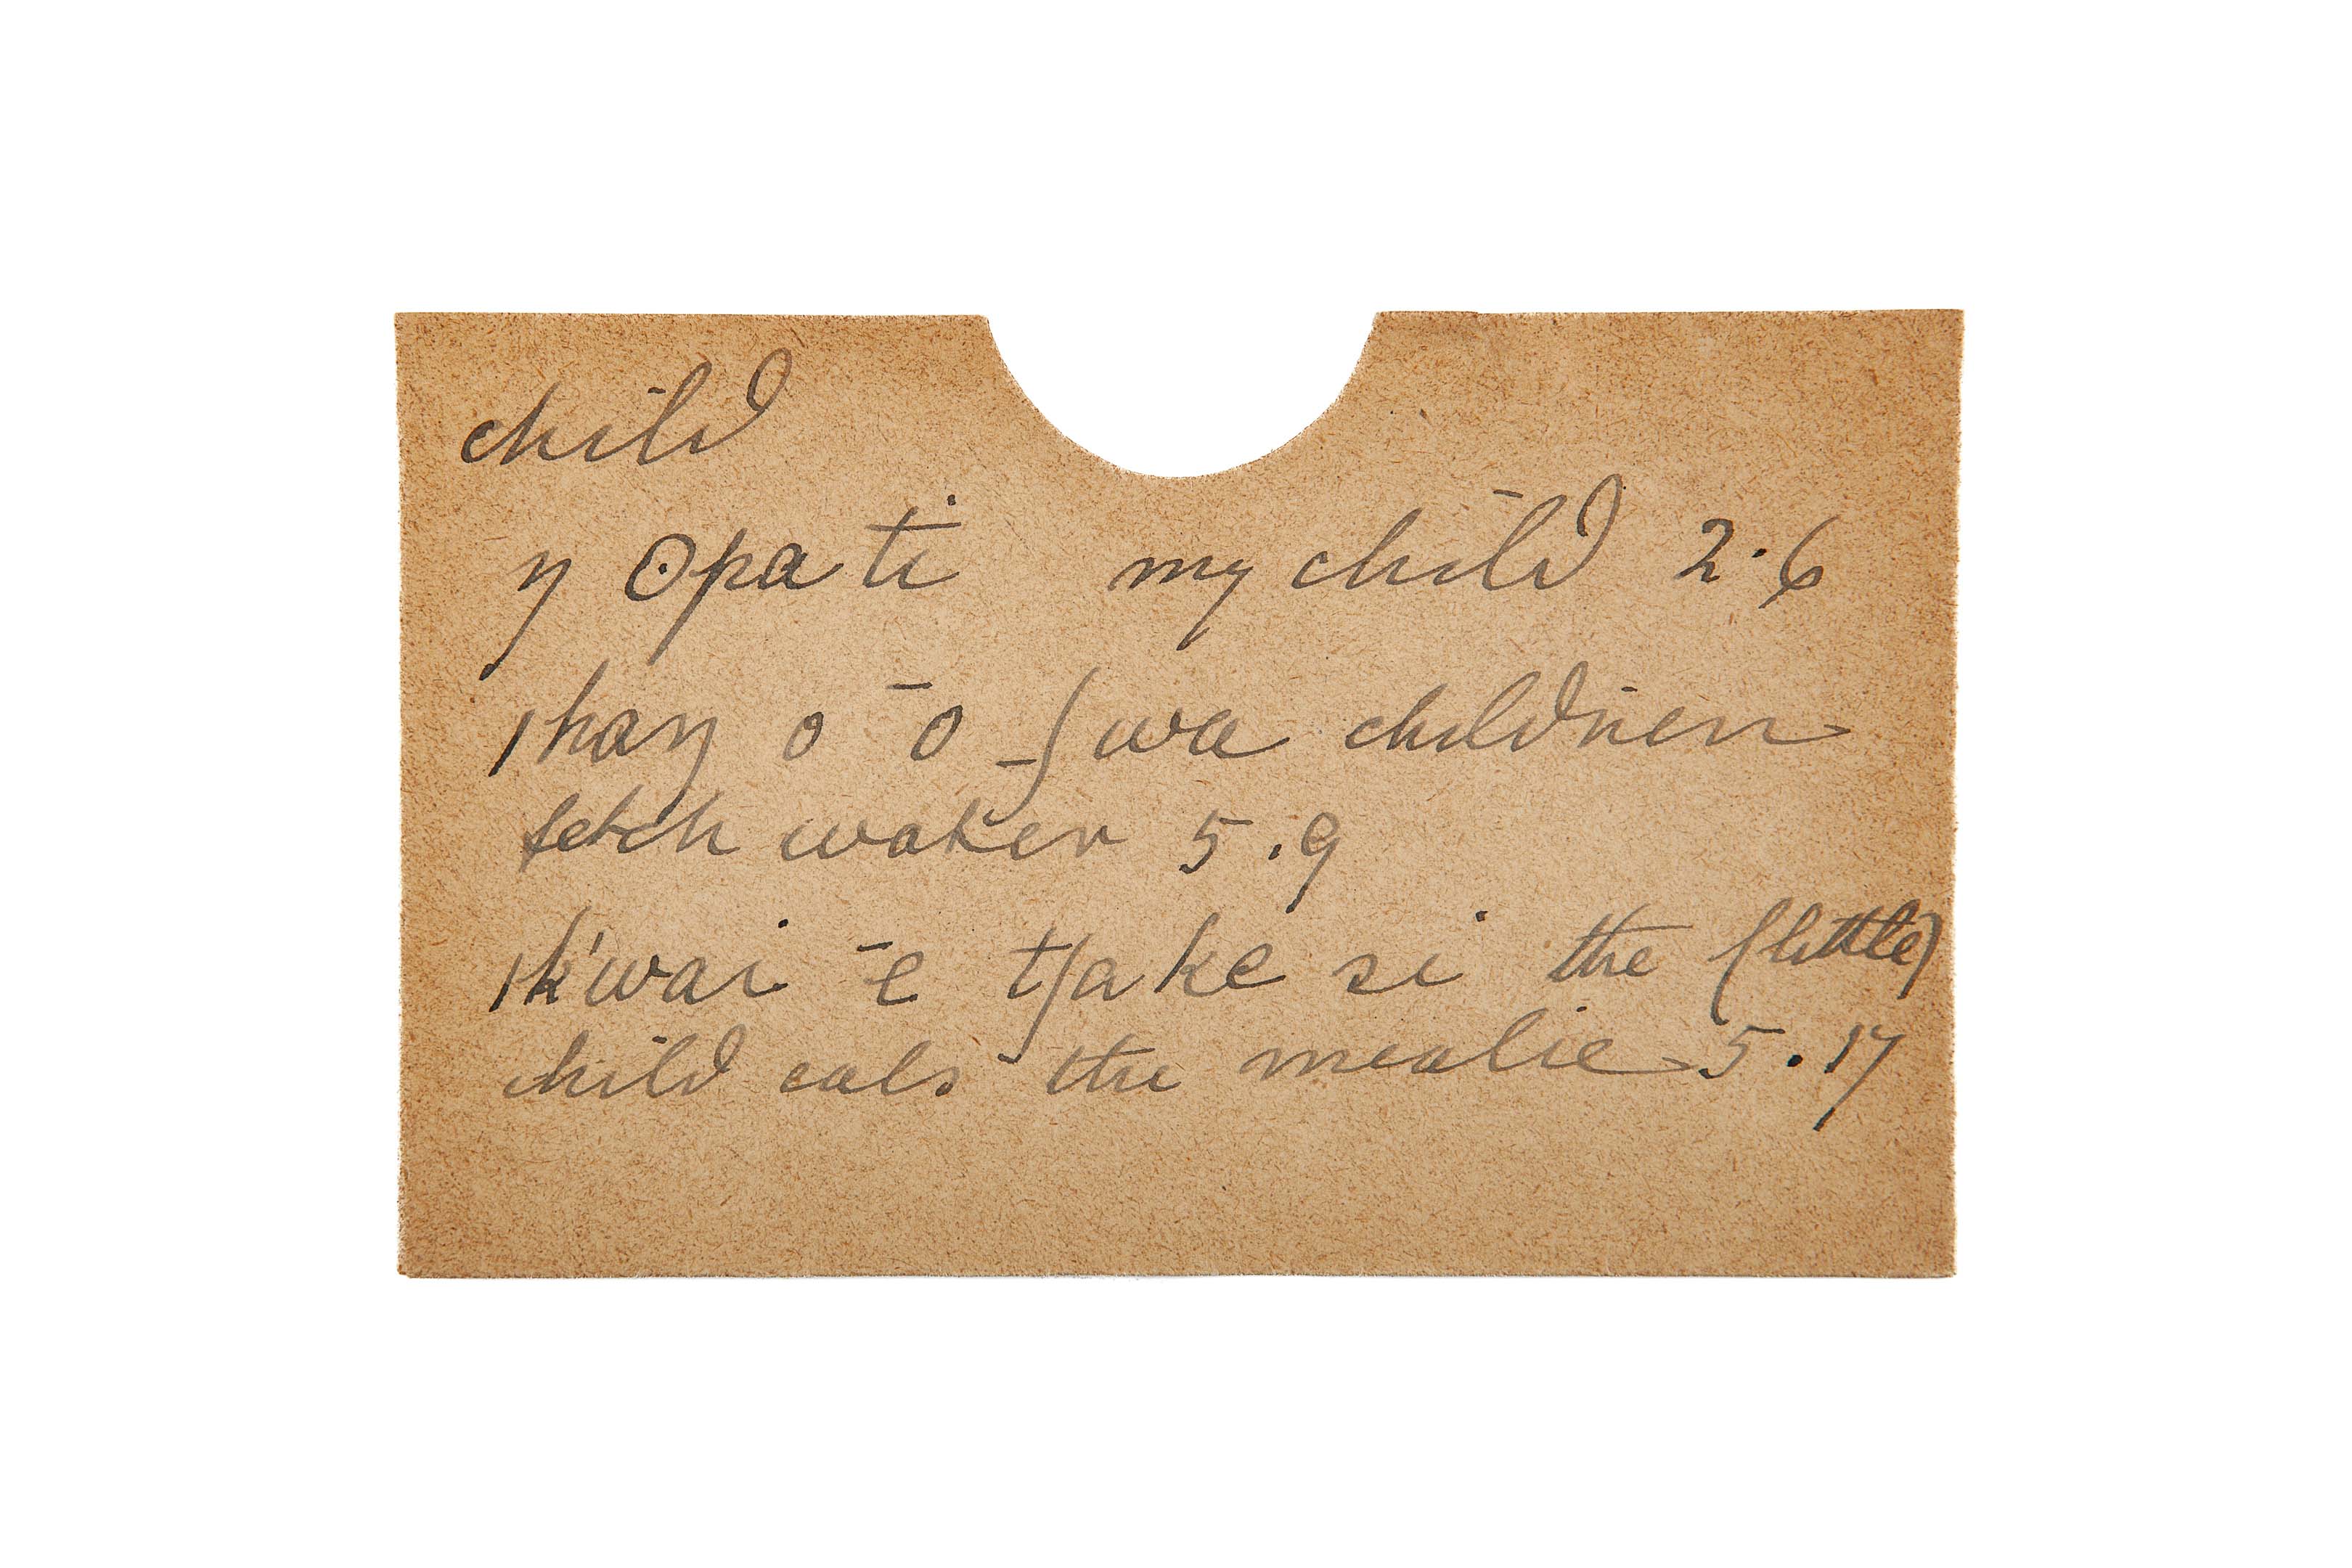 child
ŋ ʘpa ti my child 2.6
ǀhaŋ o ¯o _ʃwa children
fetch water 5.9
ǀk'wai ¯e tʃa ke si the (little)
child eats the mealie 5.17